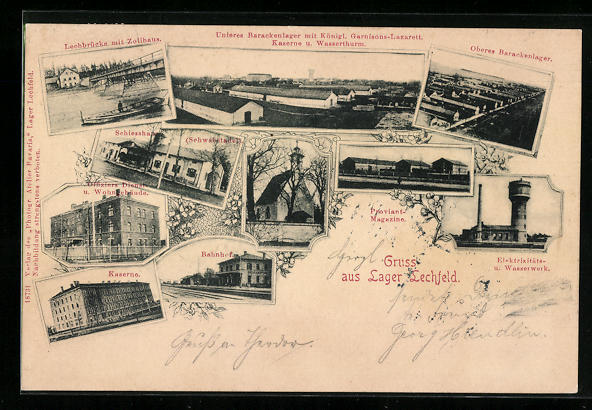 Lechbrücke mit Zollhaus.
Unteres Barackenlager mit Königl. Garnisons-Lazarett.
Kaserne u. Wasserthurm.
Oberes Barackenlager.
Schiesshaus
(Schwabstadel)
Offiziers Dienst-
u. Wohngebäude.
Proviant-
Magazine.
Elektrizitäts-
u. Wasserwerk.
Bahnhof.
Kaserne.
Gruss
aus Lager Lechfeld.
Gruß an Theodor.
Georg
18731 Verlag des „Photogr. Atelier Bavaria," Lager Lechfeld.
Nachbildung strengstens verboten.